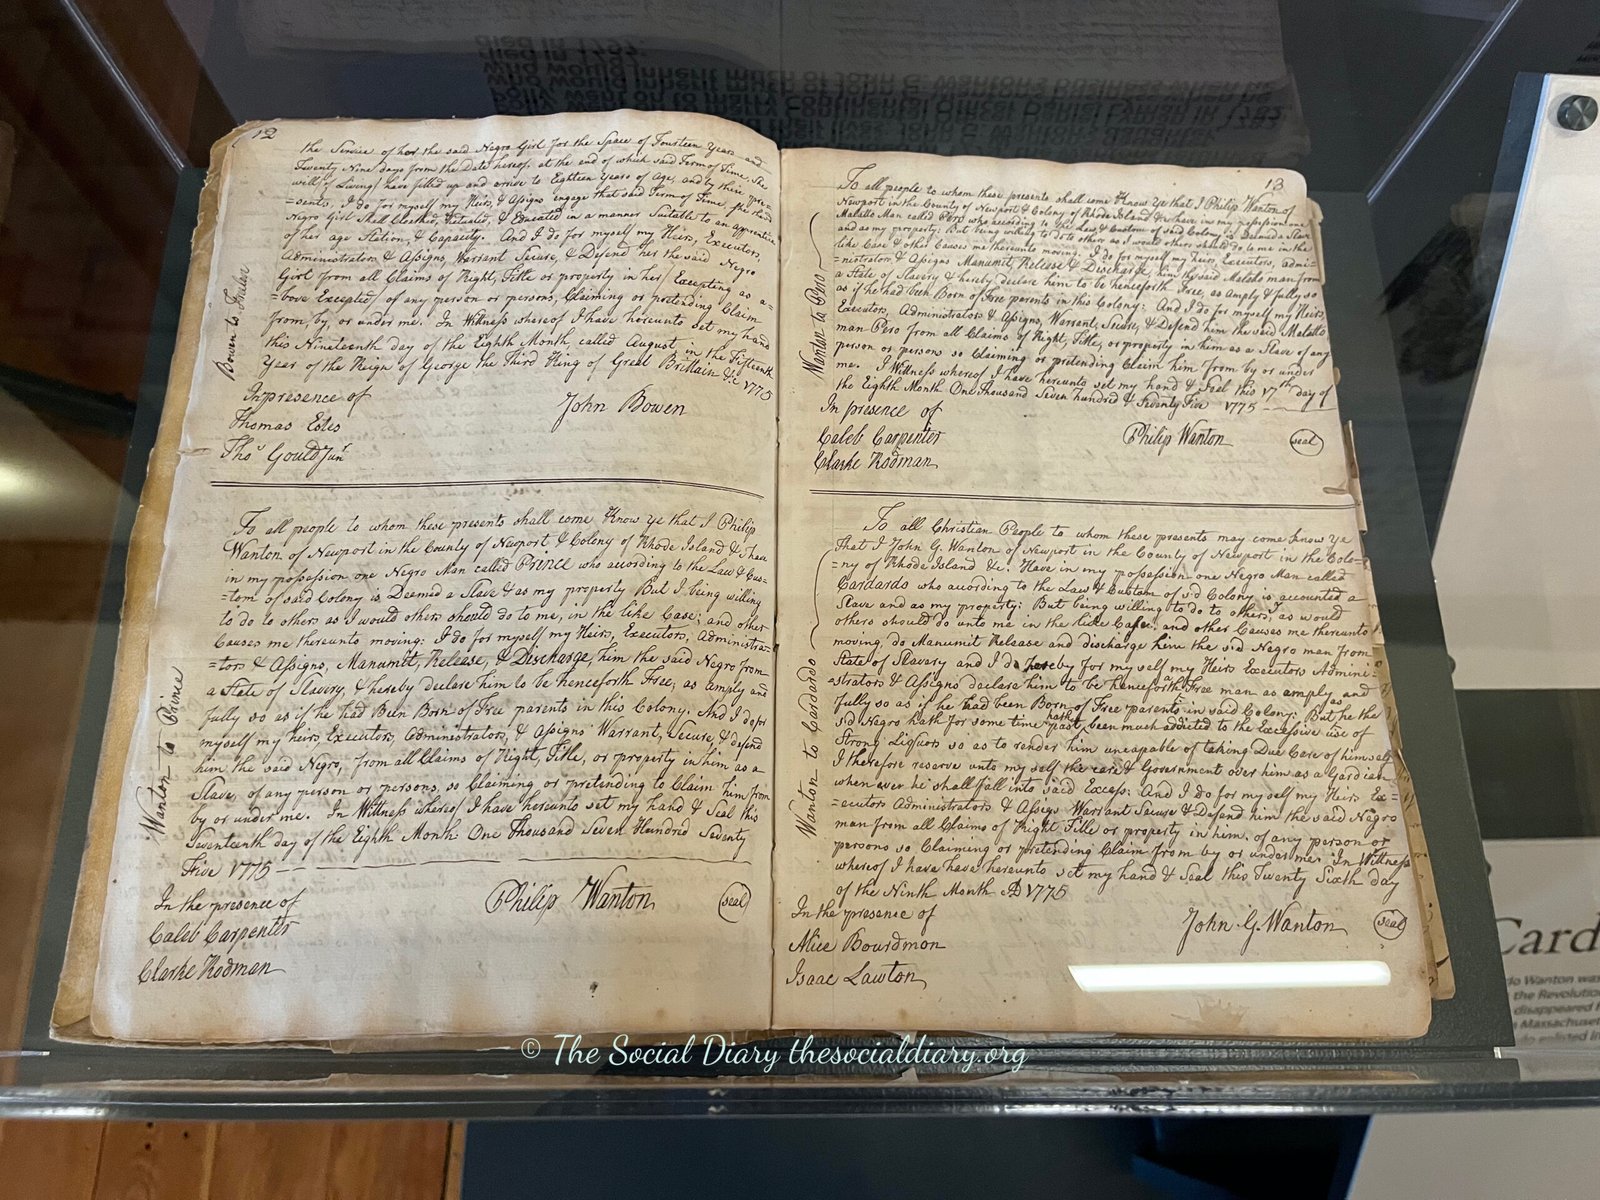 12
the Service of her the said Negro Girl for the Space of Fourteen Years and
Twenty Nine days from the Date hereof. at the end of which said Term of Time, She
will if Living have filled up and arrive to Eighteen Years of Age, and by these pre=
=sents, I do for myself my Heirs, & Assigns engage that said Term of Time, the said
Negro Girl Shall Clothed, Victualed, & Educated in a manner Suitable to an apprentice
of her age Station, & Capacity. And I do for myself my Heirs, Executors,
Administrators & Assigns, Warrant Secure, & Defend her the said Negro
Girl from all Claims of Right, Title or property in her (Excepting as a=
=bove Excepted) of any person or persons, Claiming or pretending Claim
from, by, or under me. In Witness whereof I have hereunto set my hand
this Nineteenth day of the Eighth Month, called August in the Fifteenth
Year of the Reign of George the Third King of Great Brittain &c 1775
In presence of
John Bowen
Thomas Estes
Thos Gould Junr
Bowen to
To all people to whom these presents shall come Know Ye that I Philip
Wanton of Newport in the County of Newport & Colony of Rhode Island & have
in my possession one Negro Man called Prince who according to the Law & Cus=
=tom of said Colony is Deemed a Slave & as my property But I being willing
to do to others as I would others should do to me, in the like Case; and other
Causes me thereunto moving: I do for myself my Heirs, Executors, Administra=
=tors & Assigns, Manumit, Release, & Discharge, him the said Negro from
a State of Slavery, & hereby declare him to be henceforth Free; as amply and
fully so as if he had Been Born of Free parents in this Colony. And I do for
myself my heirs, Executors, Administrators, & Assigns Warrant, Secure, & defend
him the said Negro, from all Claims of Right, Title, or property in him as a
Slave, of any person or persons, so Claiming or pretending to Claim him from
by or under me. In Wittness whereof I have hereunto set my hand & Seal this
Seventeenth day of the Eighth Month One Thousand Seven Hundred Seventy
Five 1775
In the presence of
Philip Wanton
seal
Caleb Carpenter
Clarke Rodman
Wanton to Prince
13
To all people to whom these presents shall come Know Ye that I Philip Wanton of
Newport in the County of Newport & Colony of Rhode Island & have in my possession one
Malatto Man called Pero who according to the Law & Custom of said Colony is Deemed a Slave
and as my property. But being willing to do to others as I would others should do to me in the
like Case & other Causes me thereunto moving. I do for myself my Heirs, Executors, admi=
=nistrators & Assigns Manumit, Release & Discharge, him the said Malatto man from
a State of Slavery & hereby declare him to be henceforth Free, as amply & fully so
as if he had been Born of Free parents in this Colony: And I do for myself my Heirs,
Executors, Administrators & Assigns, Warrant, Secure, & Defend him the said Malatto
man Pero from all Claims of Right, Title, or property in him as a Slave of any
person or persons so Claiming or pretending Claim him from by or under
me. I Willness whereof I have hereunto set my hand & Seal this 17th day of
the Eighth Month One Thousand Seven hundred & Seventy Five 1775
In presence of
Caleb Carpenter
Philip Wanton
seal
Clarke Rodman
Wanton to Pero
To all Christian People to whom these presents may come Know Ye
that I John G. Wanton of Newport in the County of Newport in the Colo=
=ny of Rhode Island &c. Have in my possession one Negro Man called
Cardardo who according to the Law & Custom of sd Colony is accounted a
Slave and as my property: But being willing to do to others, I, as would
others should do unto me in the like Case: and other Causes me thereunto
moving, do Manumit Release and discharge him the sd Negro man from
State of Slavery and I do hereby for my self my Heirs Executors Admini=
=strators & Assigns declare him to be henceforth a Free man as amply and
fully so as if he had been Born of Free parents in said Colony: But he the
sd Negro hath for some time past, been much addicted to the Excessive use of
Strong Liquors so as to render him uncapable of taking Due Care of himself
I therefore reserve unto my self the care & Government over him as a Gardian
when ever he shall fall into said Excess: And I do for my self my Heirs Ex=
=ecutors Administrators & Assigs Warrant Secure & Defend him the said Negro
man from all Claims of Right Title or property in him, of any person or
persons so Claiming or pretending Claim from by or under me In Wittness
whereof I have have hereunto set my hand & Seal this Twenty Sixth day
of the Ninth Month AD 1775
In the presence of
John G. Wanton
seal
Alice Bourdmon
Isaac Lawton
Wanton to Cardardo
© The Social Diary thesocialdiary.org
Card
Wanton was
the Revolution
disappeared
Massachuset
enlisted in